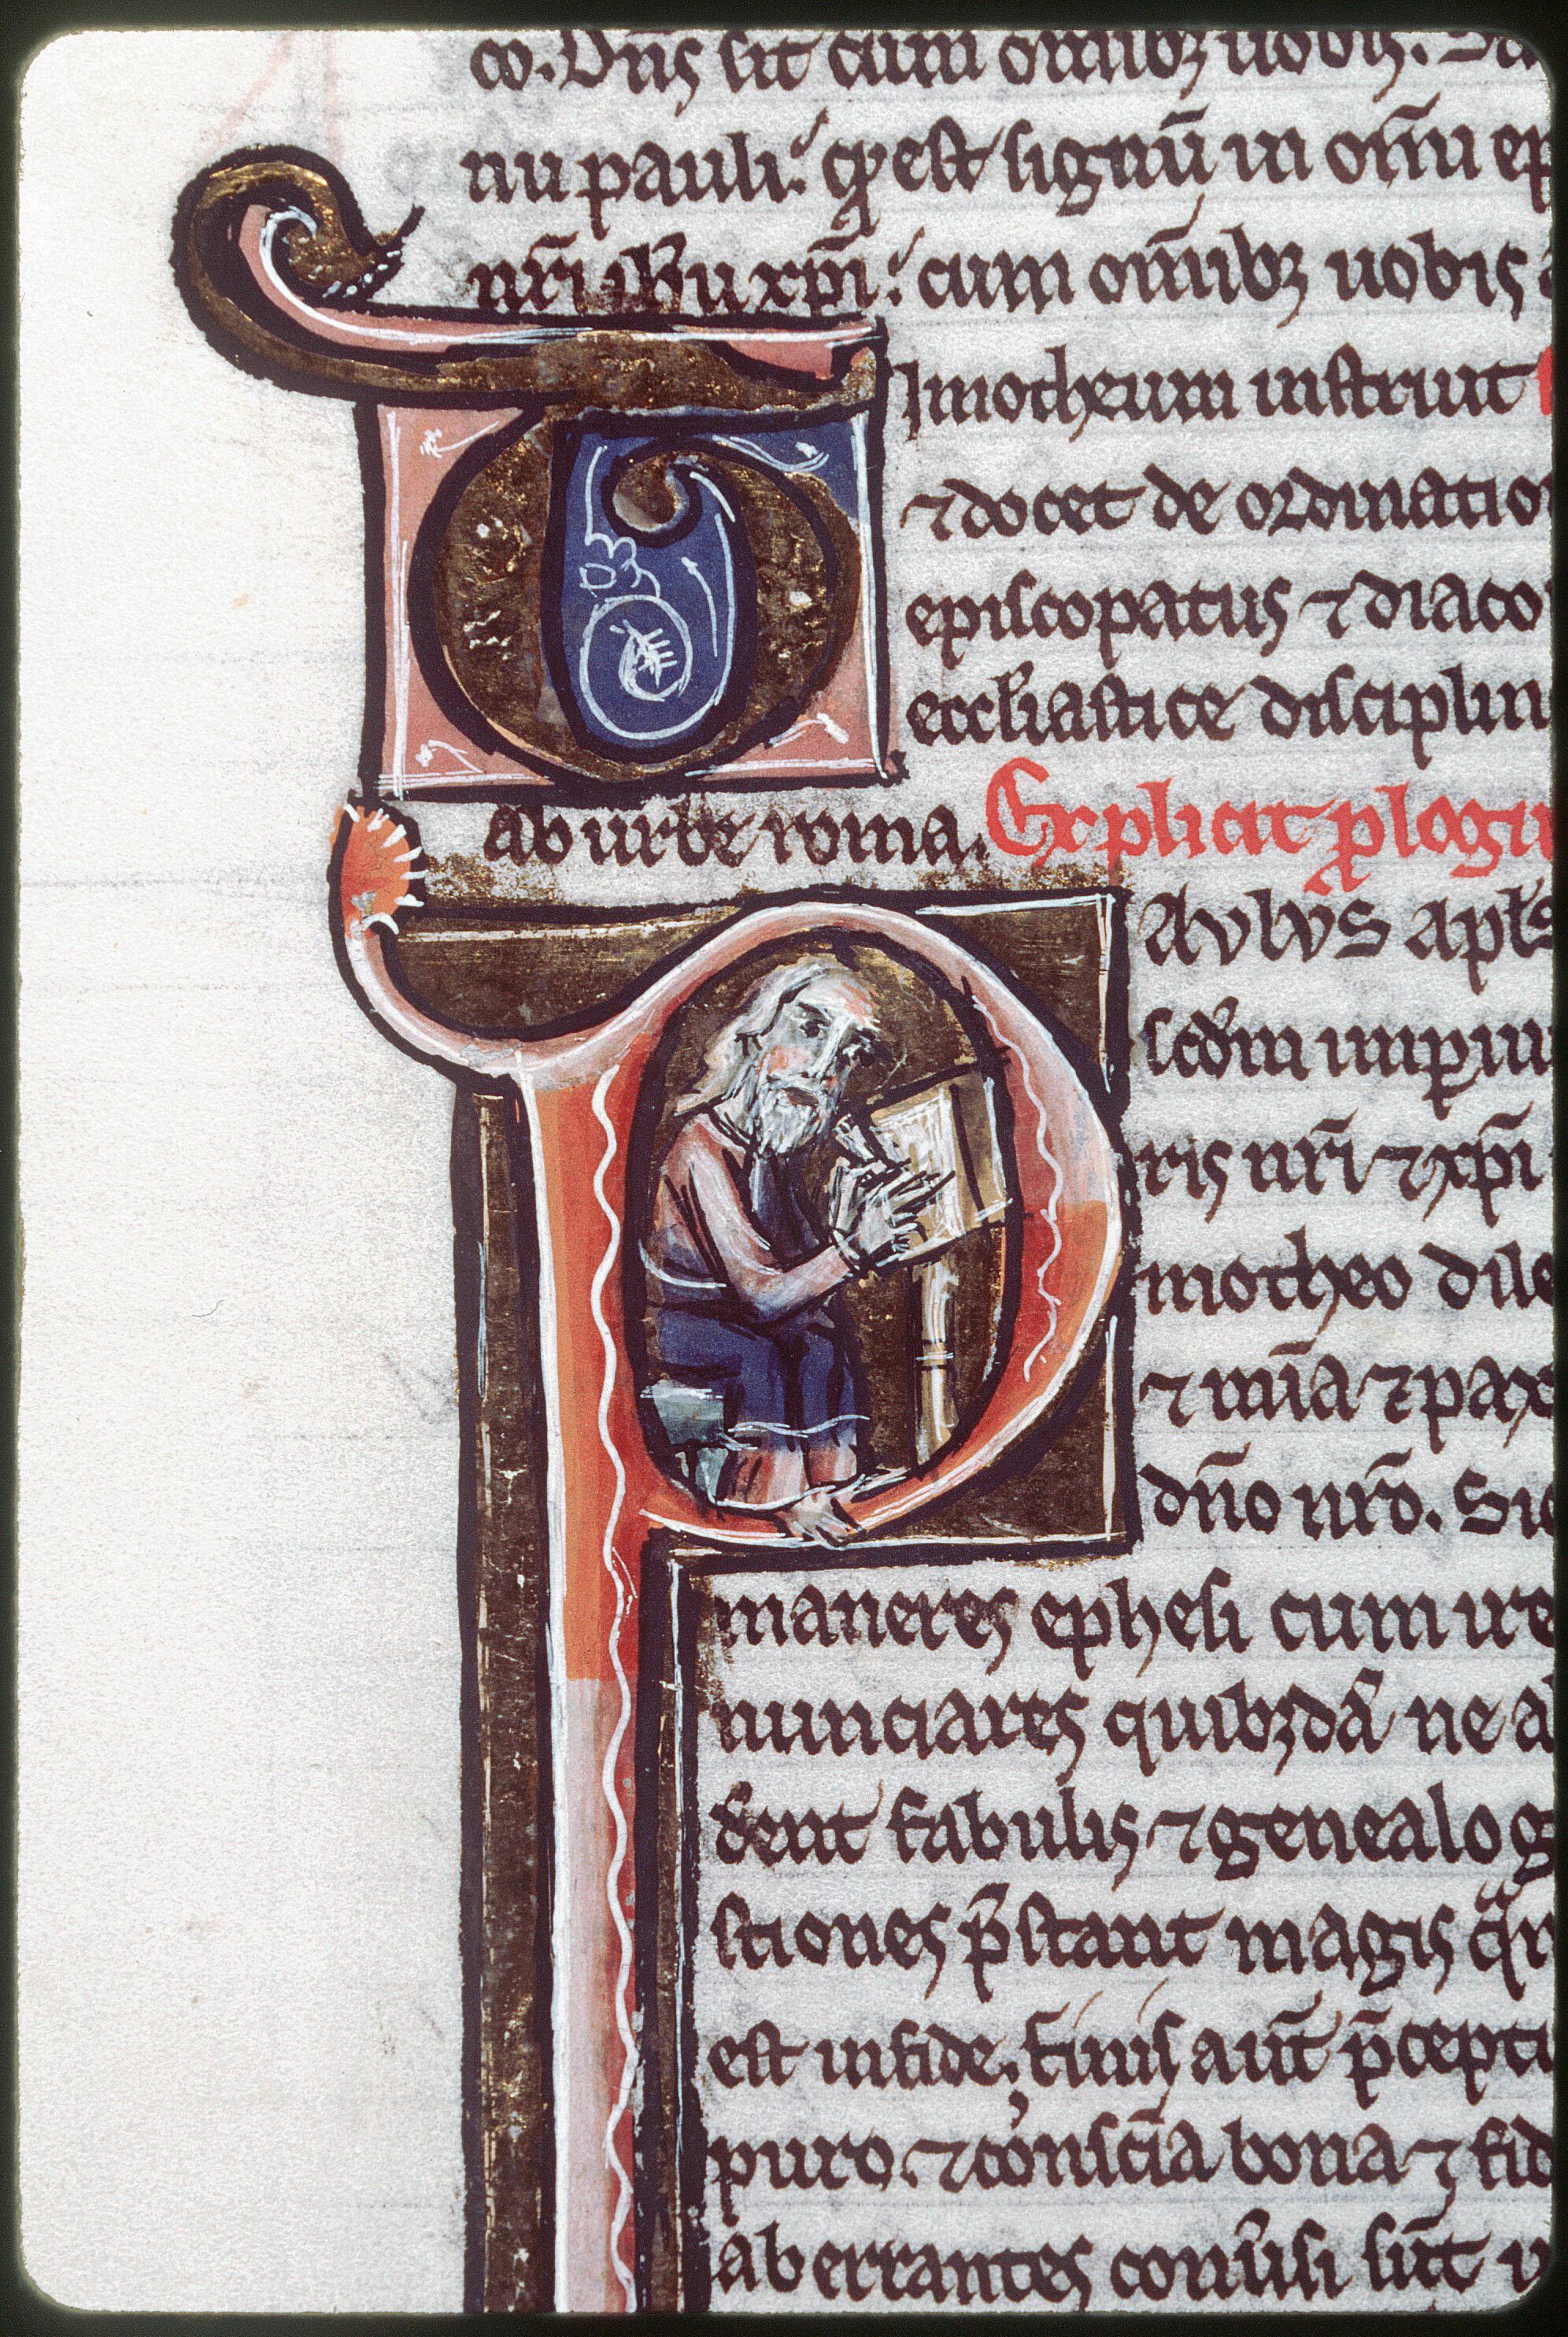 co. Dn̄s sit cum om̄ibꝫ uobis. Sa
nu pauli. qđ est signū in om̄i ep
nr̄i ih̄u xp̄i. cum om̄ibꝫ uobis
Timotheum instruit
⁊ docet de ordinatio
episcopatus ⁊ diaco
eccl̄iastice disciplin
ab urbe roma. Explicit ꝓlogu
PAVLVS apl̄s
scd̄m imꝑiu
ris nr̄i ⁊ xp̄i
motheo dile
⁊ mīa ⁊ pax
dn̄o nr̄o. Sic
maneres ephesi cum ire
nunciares quibꝫdā ne a
derent fabulis ⁊ genealog
stiones p̄stant magis qͣm
est in fide. finis aūt p̄cepti
puro. ⁊ cōnscīa bona ⁊ fid
aberrantes conūsi sūt